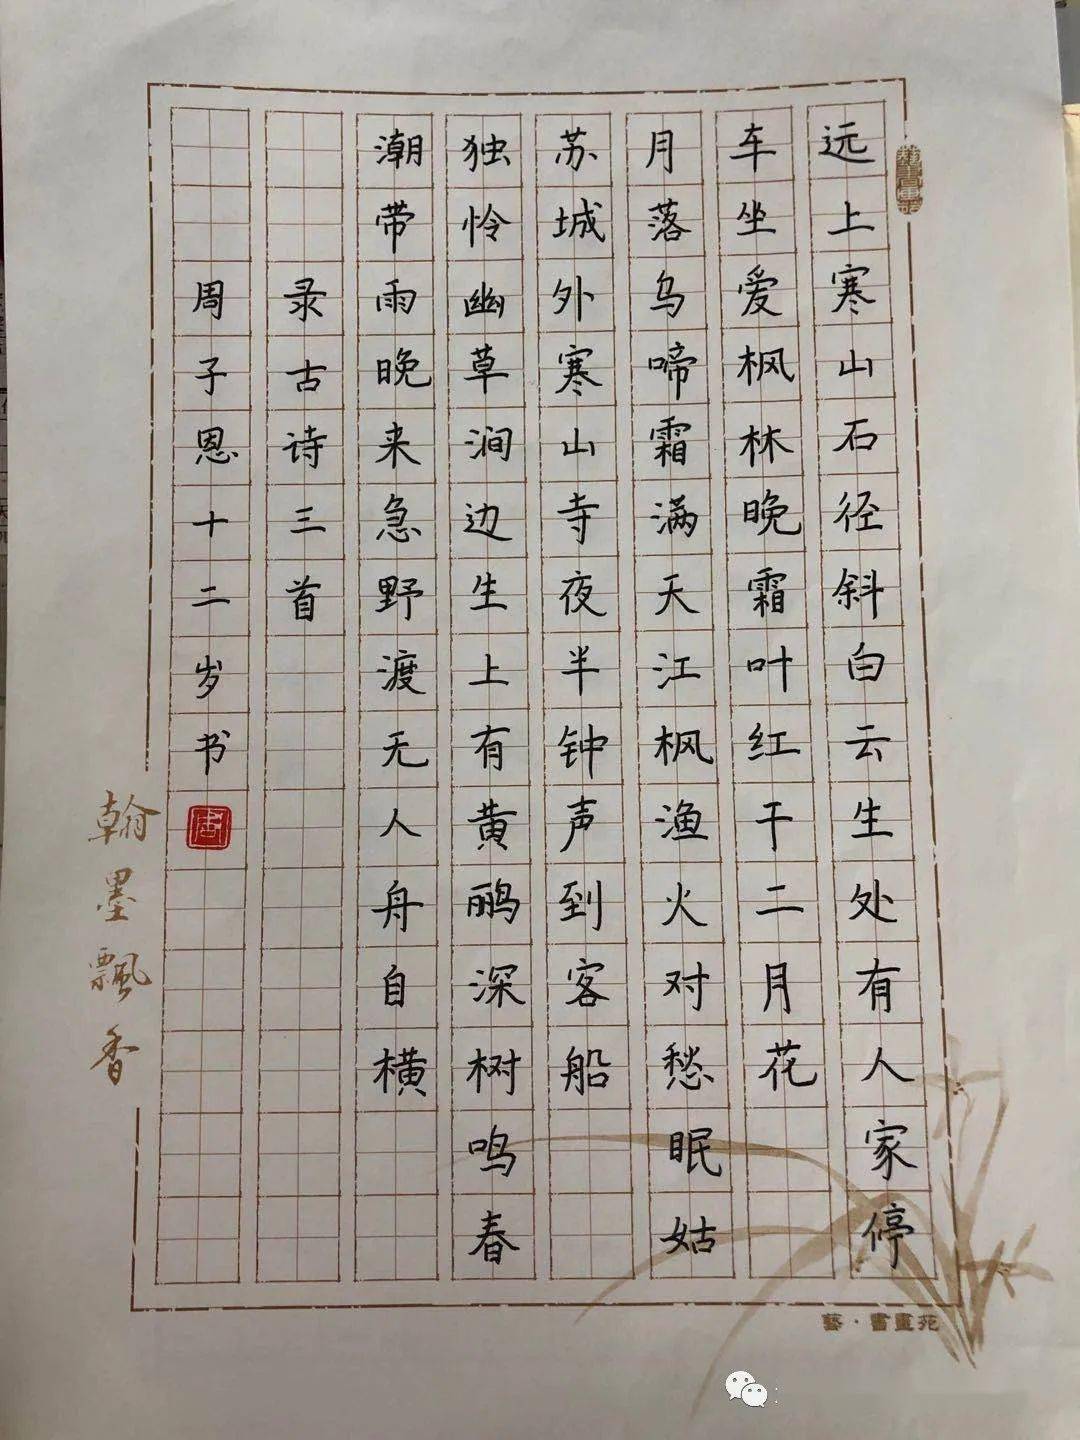 远上寒山石径斜白云生处有人家停
车坐爱枫林晚霜叶红于二月花
月落乌啼霜满天江枫渔火对愁眠姑
苏城外寒山寺夜半钟声到客船
独怜幽草涧边生上有黄鹂深树鸣春
潮带雨晚来急野渡无人舟自横
录古诗三首
周子恩十二岁书
翰墨飄香
藝·書畫苑